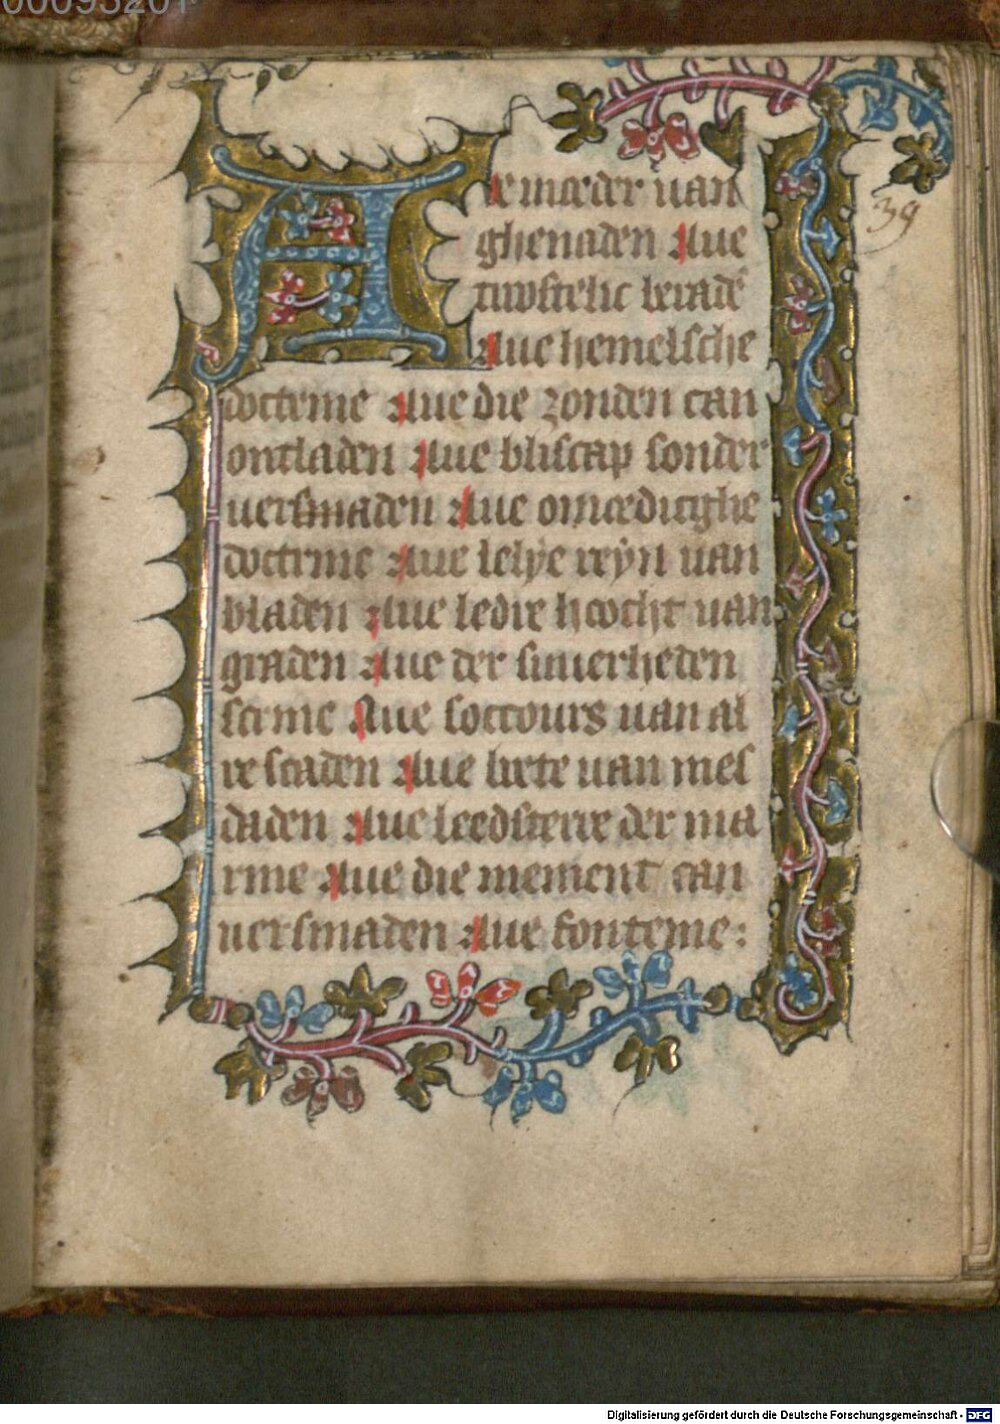 00095201
39
Aue moeder uan
ghenaden Aue
troostelic beradē
Aue hemelsche
doctrine Aue die zonden can
ontladen Aue bliscap sonder
uersmaden Aue omoedicghe
doctrine Aue lelye reyn uan
bladen Aue ledre hoocht uan
graden Aue der suuerheden
scrine Aue soccours uan al
re scaden Aue bete uan mes
daden Aue leedsterre der ma
rine Aue die niement can
uersmaden Aue fonteine:
Digitalisierung gefördert durch die Deutsche Forschungsgemeinschaft - DFG